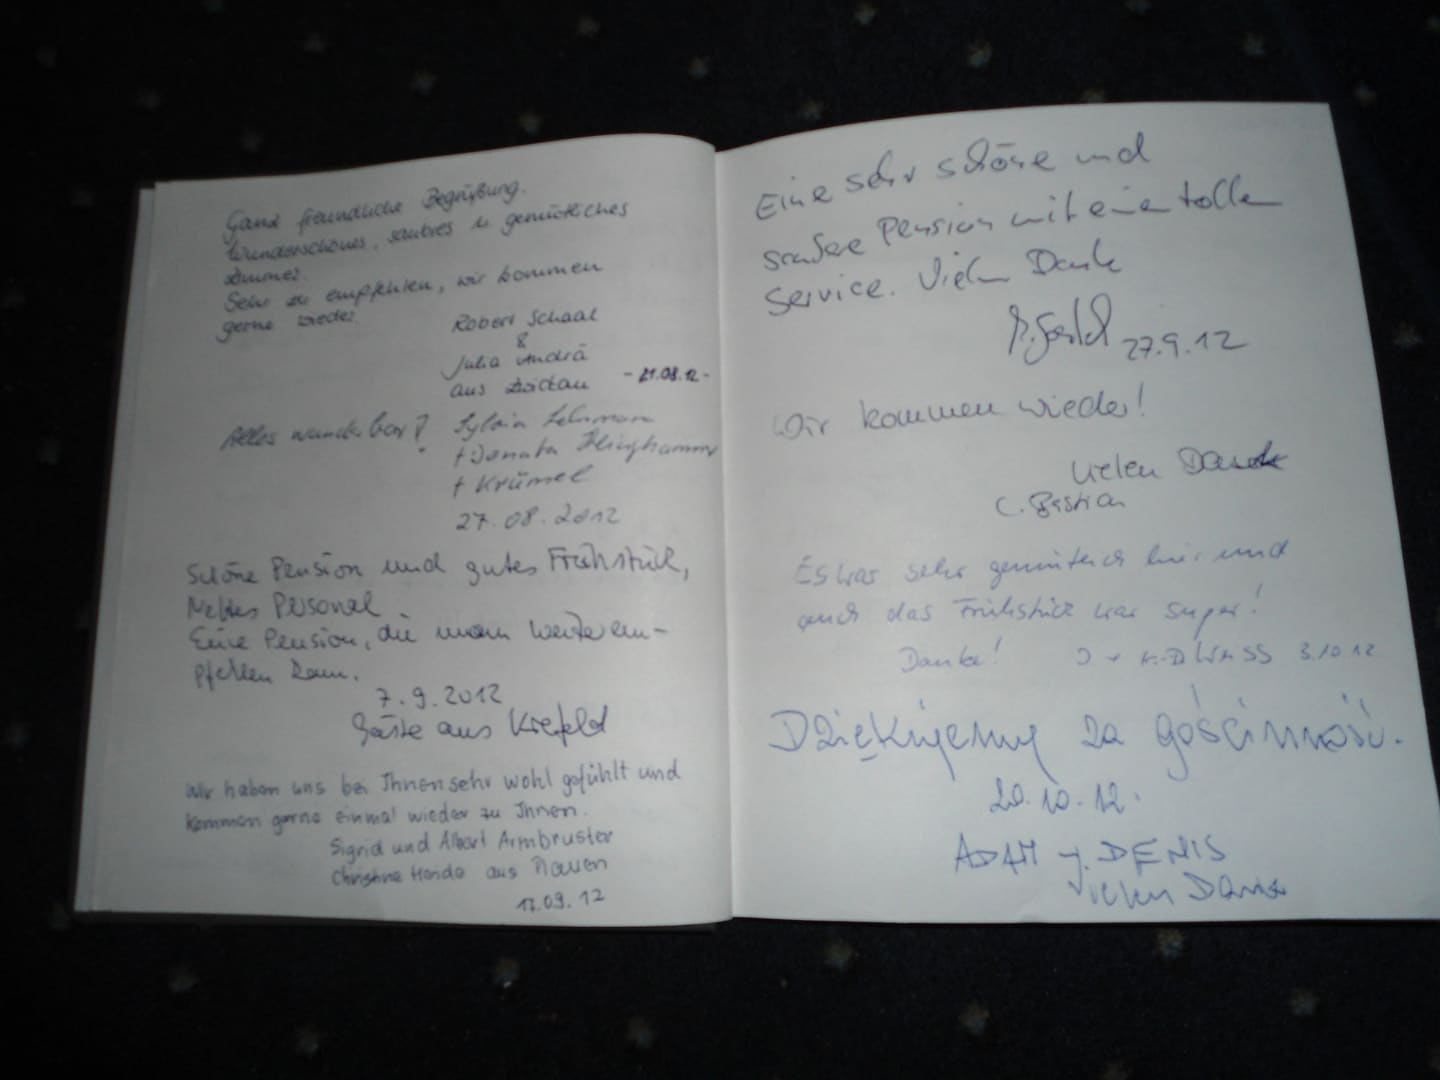 Ganz freundliche Begrüßung.
Wunderschönes, saubres u. gemütliches
Zimmer.
Sehr zu empfehlen, wir kommen
gerne wieder.
Robert Schaal
&
Julia Andrä
aus Zwickau - 21.08.12 -
Alles wunderbar! Sylvia Lehmann
+ Donata
+ Krümel
27.08.2012
Schöne Pension und gutes Frühstück,
Nettes Personal.
Eine Pension, die man weiterem-
pfehlen kann.
7.9.2012
Gäste aus Krefeld
Wir haben uns bei Ihnen sehr wohl gefühlt und
kommen gerne einmal wieder zu Ihnen.
Sigrid und Albert Armbruster
Christine aus Plauen
17.09.12
Eine sehr schöne und
saubere Pension mit einen tollen
Service. Vielen Dank
27.9.12
Wir kommen wieder!
Vielen Dank
C. Bastian
Es war sehr gemütlich hier und
auch das Frühstück war super!
Danke! 3.10.12
Dziękujemy za gościnność.
20.10.12.
ADAM j. DENIS
Vielen Dank